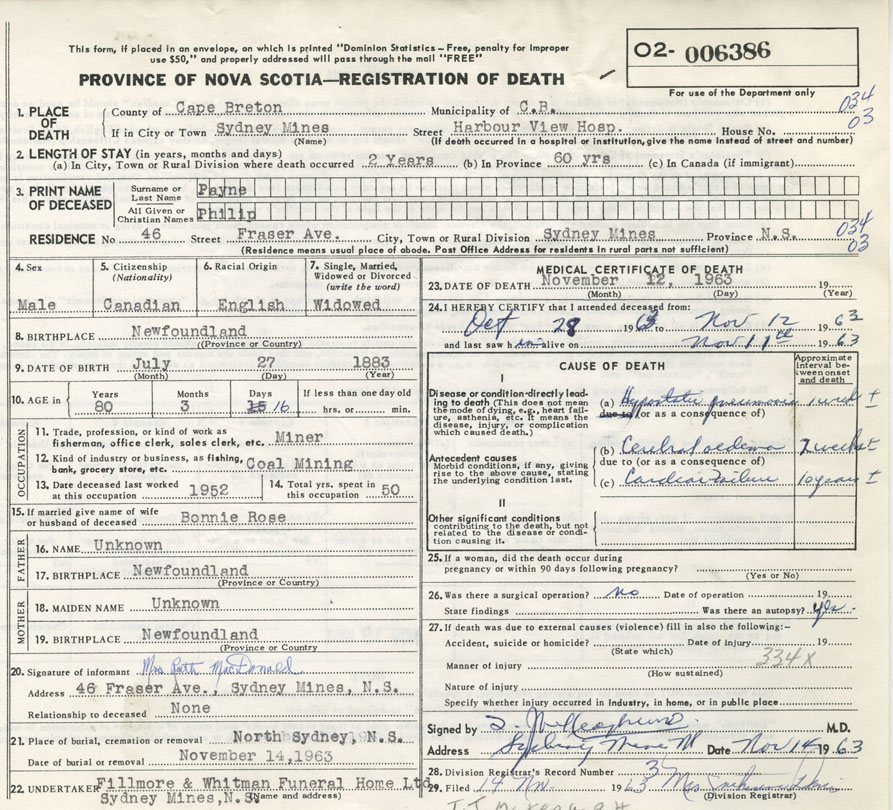 This form, if placed in an envelope, on which is printed "Dominion Statistics – Free, penalty for improper
use $50," and properly addressed will pass through the mail "FREE"
O2- 006386
PROVINCE OF NOVA SCOTIA—REGISTRATION OF DEATH
For use of the Department only
1. PLACE OF DEATH
County of Cape Breton Municipality of C.B. 034
If in City or Town Sydney Mines Street Harbour View Hosp. House No. 03
(Name) (If death occurred in a hospital or institution, give the name instead of street and number)
2. LENGTH OF STAY (in years, months and days)
(a) In City, Town or Rural Division where death occurred 2 Years (b) In Province 60 yrs (c) In Canada (if immigrant)
3. PRINT NAME OF DECEASED
Surname or Last Name Payne
All Given or Christian Names Philip
RESIDENCE No 46 Street Fraser Ave. City, Town or Rural Division Sydney Mines Province N.S. 034 03
(Residence means usual place of abode. Post Office Address for residents in rural parts not sufficient)
4. Sex Male
5. Citizenship (Nationality) Canadian
6. Racial Origin English
7. Single, Married, Widowed or Divorced (write the word) Widowed
8. BIRTHPLACE Newfoundland
(Province or Country)
9. DATE OF BIRTH July 27 1883
(Month) (Day) (Year)
10. AGE in Years 80 Months 3 Days 15 16 If less than one day old hrs. or min.
OCCUPATION
11. Trade, profession, or kind of work as fisherman, office clerk, sales clerk, etc. Miner
12. Kind of industry or business, as fishing, bank, grocery store, etc. Coal Mining
13. Date deceased last worked at this occupation 1952
14. Total yrs. spent in this occupation 50
15. If married give name of wife or husband of deceased Bonnie Rose
FATHER
16. NAME Unknown
17. BIRTHPLACE Newfoundland
(Province or Country)
MOTHER
18. MAIDEN NAME Unknown
19. BIRTHPLACE Newfoundland
(Province or Country
20. Signature of informant Mrs Ruth MacDonald
Address 46 Fraser Ave., Sydney Mines, N.S.
Relationship to deceased None
21. Place of burial, cremation or removal North Sydney, N.S.
Date of burial or removal November 14,1963
22. UNDERTAKER Fillmore & Whitman Funeral Home Ltd
Sydney Mines,N.S. (Name and address)
MEDICAL CERTIFICATE OF DEATH
23. DATE OF DEATH November 12, 1963 19
(Month) (Day) (Year)
24. I HEREBY CERTIFY that I attended deceased from:
Oct 28 1963 to Nov 12 1963
and last saw h im alive on Nov 11th 1963
CAUSE OF DEATH
Approximate interval between onset and death
I
Disease or condition-directly leading to death (This does not mean the mode of dying, e.g., heart failure, asthenia, etc. It means the disease, injury, or complication which caused death.)
(a) Hypostatic pneumonia 1 week ±
due to (or as a consequence of)
Antecedent causes
Morbid conditions, if any, giving rise to the above cause, stating the underlying condition last.
(b) Cerebral oedema 2 weeks ±
due to (or as a consequence of)
(c) Cardiac failure 10 years ±
II
Other significant conditions
contributing to the death, but not related to the disease or condition causing it.
25. If a woman, did the death occur during
pregnancy or within 90 days following pregnancy?
(Yes or No)
26. Was there a surgical operation? no Date of operation 19
State findings Was there an autopsy? yes.
27. If death was due to external causes (violence) fill in also the following:–
Accident, suicide or homicide? Date of injury 19
(State which)
334X
Manner of injury
(How sustained)
Nature of injury
Specify whether injury occurred in Industry, in home, or in public place
Signed by M.D.
Address Sydney Mines Date Nov 14 1963
28. Division Registrar's Record Number 3
29. Filed 14 Nov 1963 Mrs
(Division Registrar)